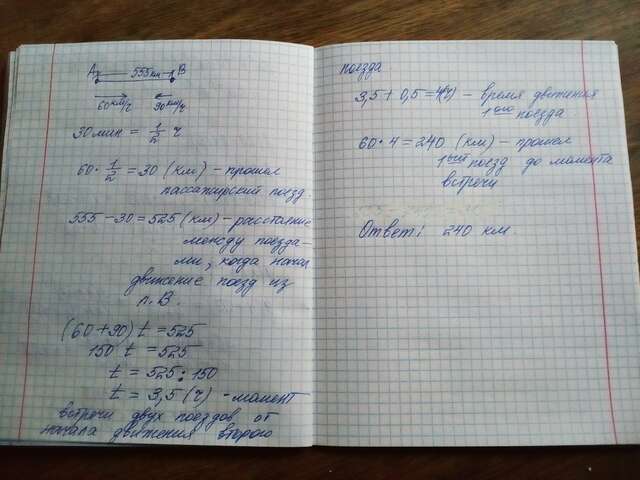 А 555 км В
60 км/ч 90 км/ч
30 мин = 1/2 ч
60 · 1/2 = 30 (км) – прошел
пассажирский поезд.
555 – 30 = 525 (км) – расстояние
между поезда-
ми, когда начал
движение поезд из
п. В.
(60 + 90) t = 525
150 t = 525
t = 525 : 150
t = 3,5 (ч) - момент
встречи двух поездов от
начала движения второго
поезда
3,5 + 0,5 = 4(ч) – время движения
1ого поезда.
60 · 4 = 240 (км) – прошел
1ый поезд до момента
встречи
Ответ: 240 км